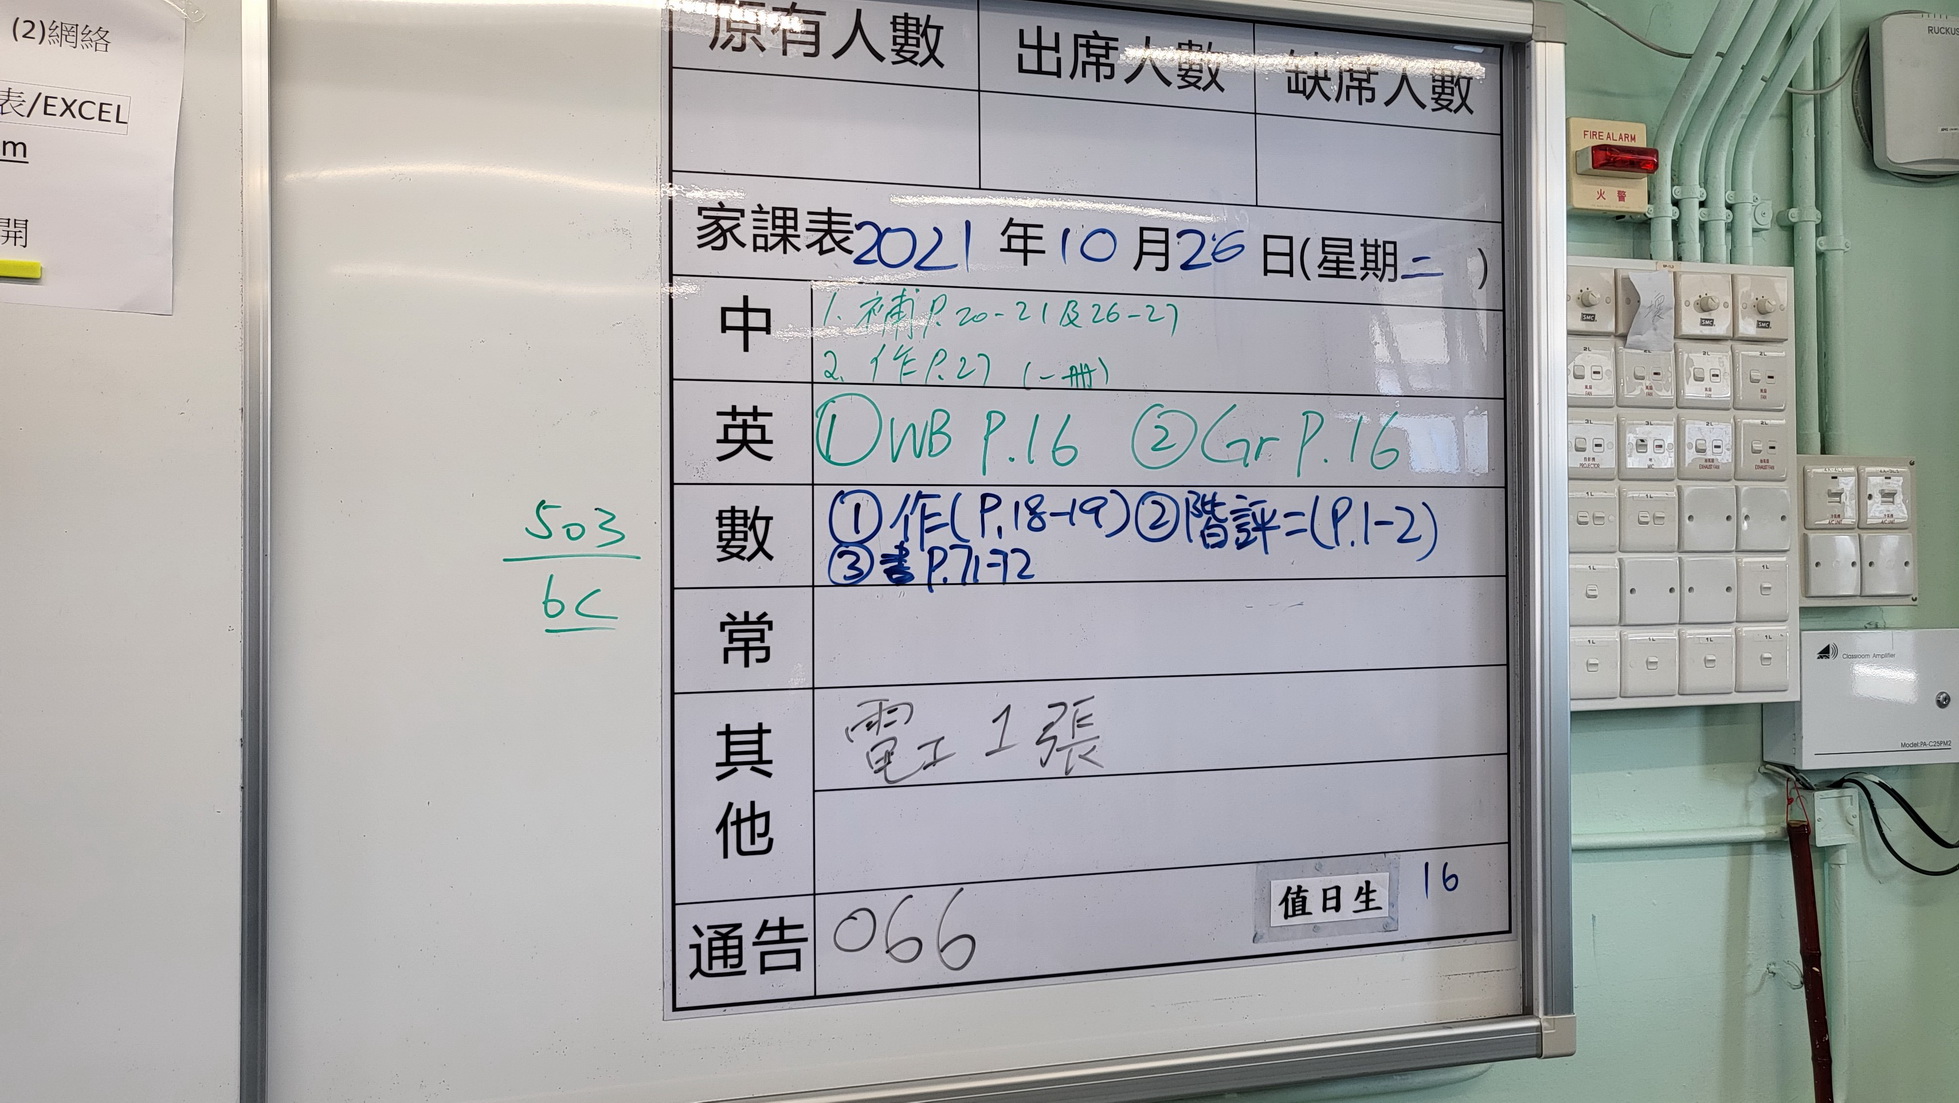 (2)網絡
表/EXCEL
m
開
原有人數 出席人數 缺席人數
家課表2021年10月26日(星期二)
中 1. 補P.20-21及26-27
2. 作P.27 (一冊)
英 ①WB P.16 ②Gr P.16
數 ①作(P.18-19)②階評二(P.1-2)
③書P.71-72
常
其他 電工1張
通告 066 值日生 16
503
6C
FIRE ALARM
火警
RUCKUS
Classroom Amplifier
Model:PA-C25PM2